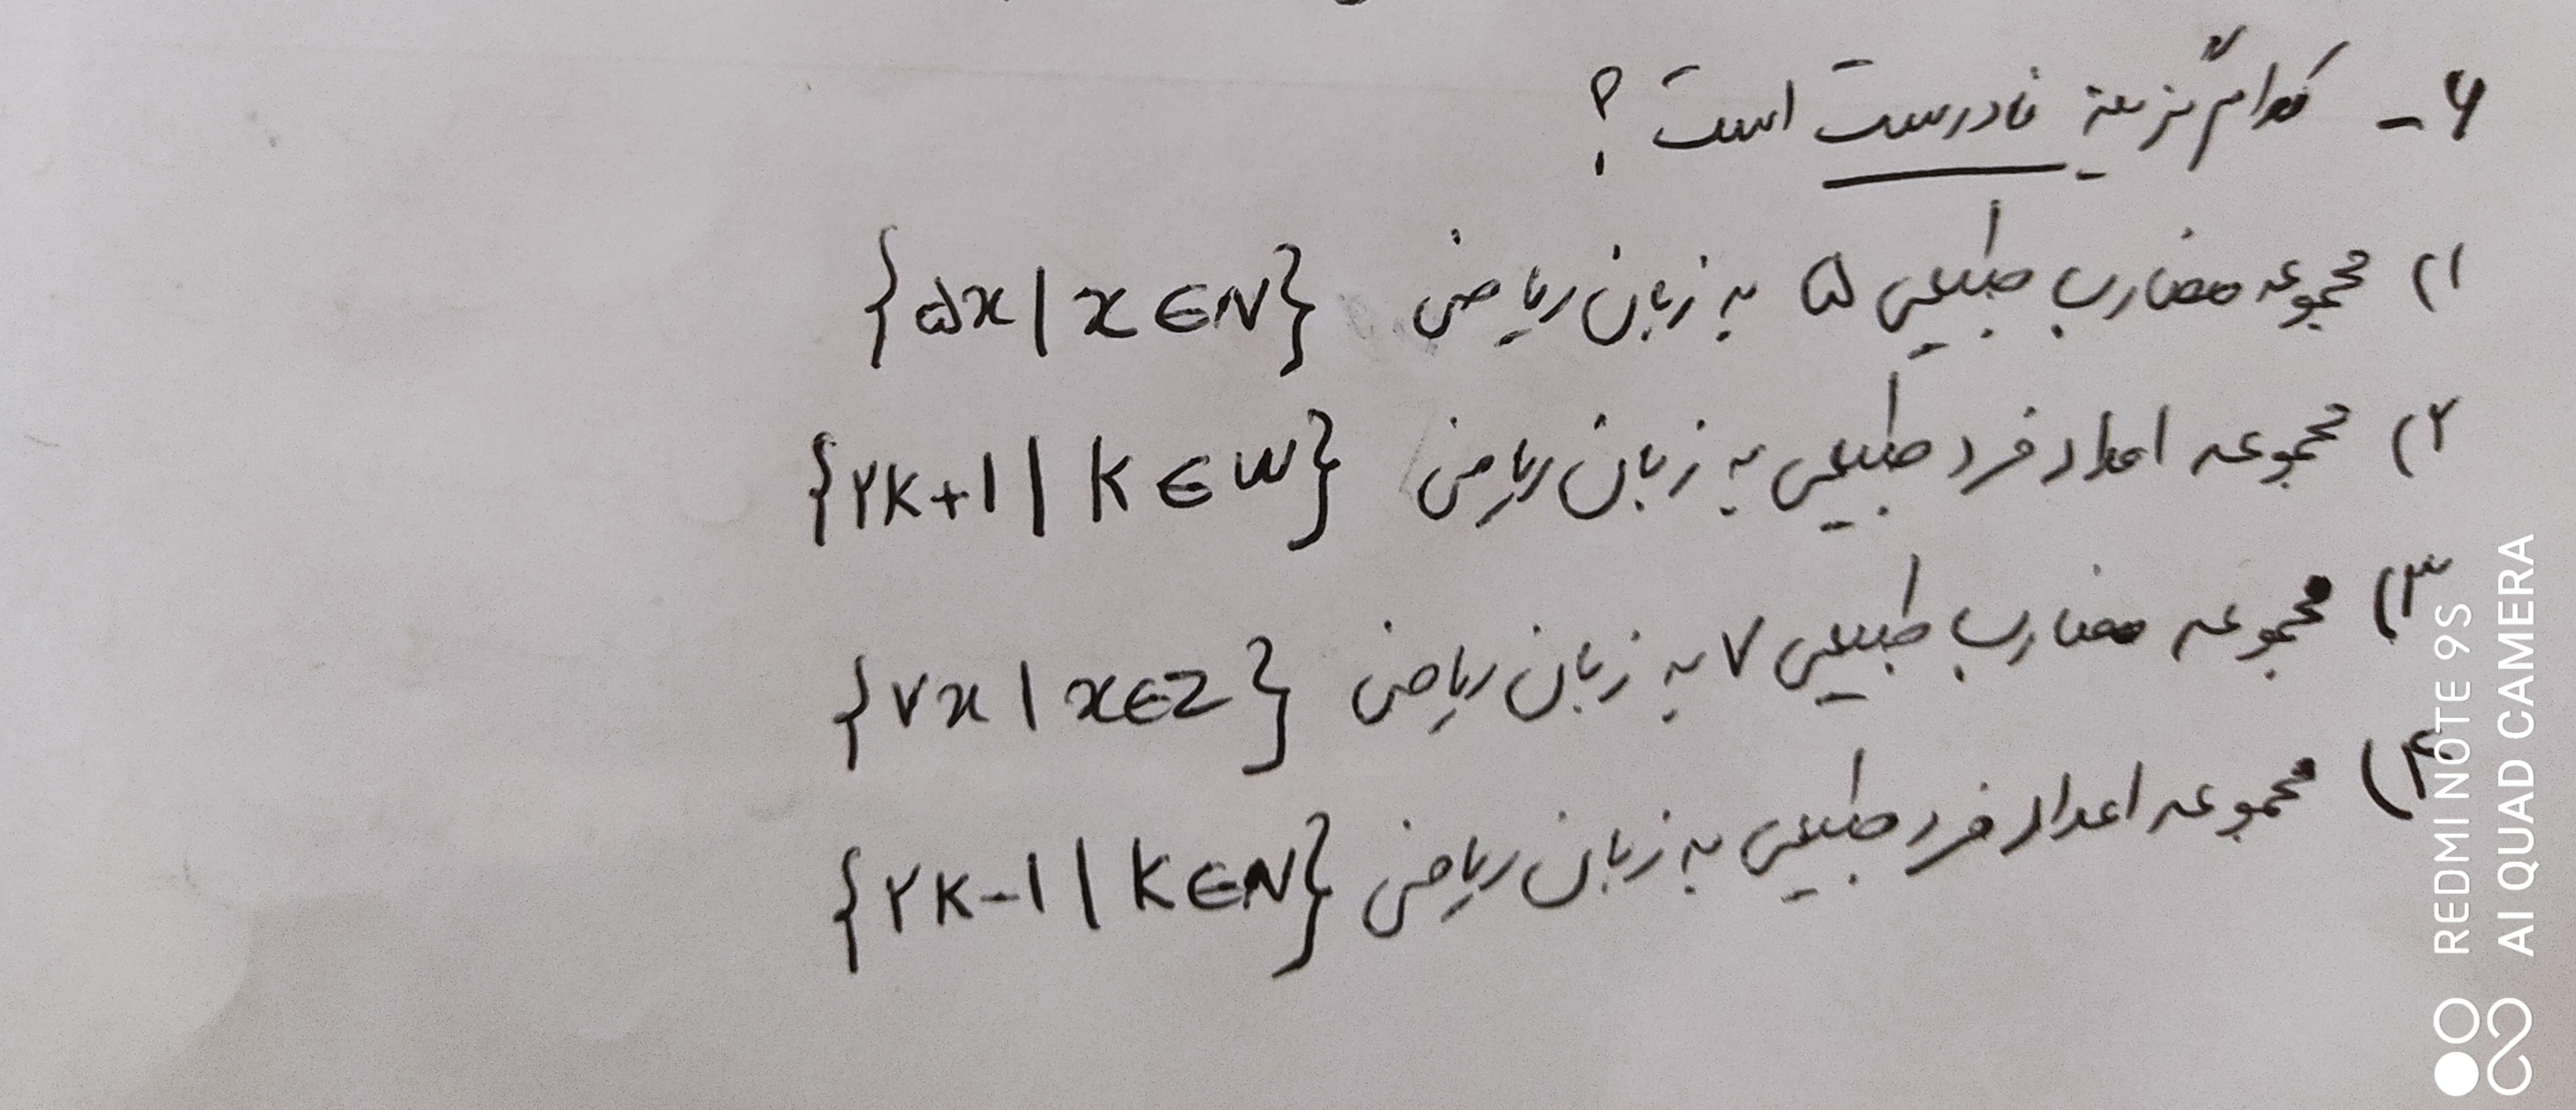 ۶- کدام گزینه نادرست است؟
۱) مجموعه مضارب طبیعی ۵ به زبان ریاضی {۵x | x ∈ N}
۲) مجموعه اعداد فرد طبیعی به زبان ریاضی {۲K+۱ | K ∈ W}
۳) مجموعه مضارب طبیعی ۷ به زبان ریاضی {۷x | x ∈ Z}
۴) مجموعه اعداد فرد طبیعی به زبان ریاضی {۲K-۱ | K ∈ N}
REDMI NOTE 9S
AI QUAD CAMERA